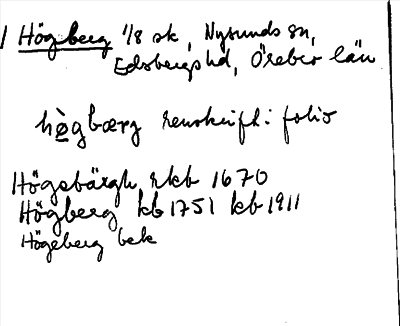 1 Högberg 1/8 sk, Nysunds sn,
Edsbergs hd, Örebro län
hø̀gbærg renskrift i folio
Högsbärgh, rkb 1670
Högberg kb 1751 kb 1911
Högeberg bek